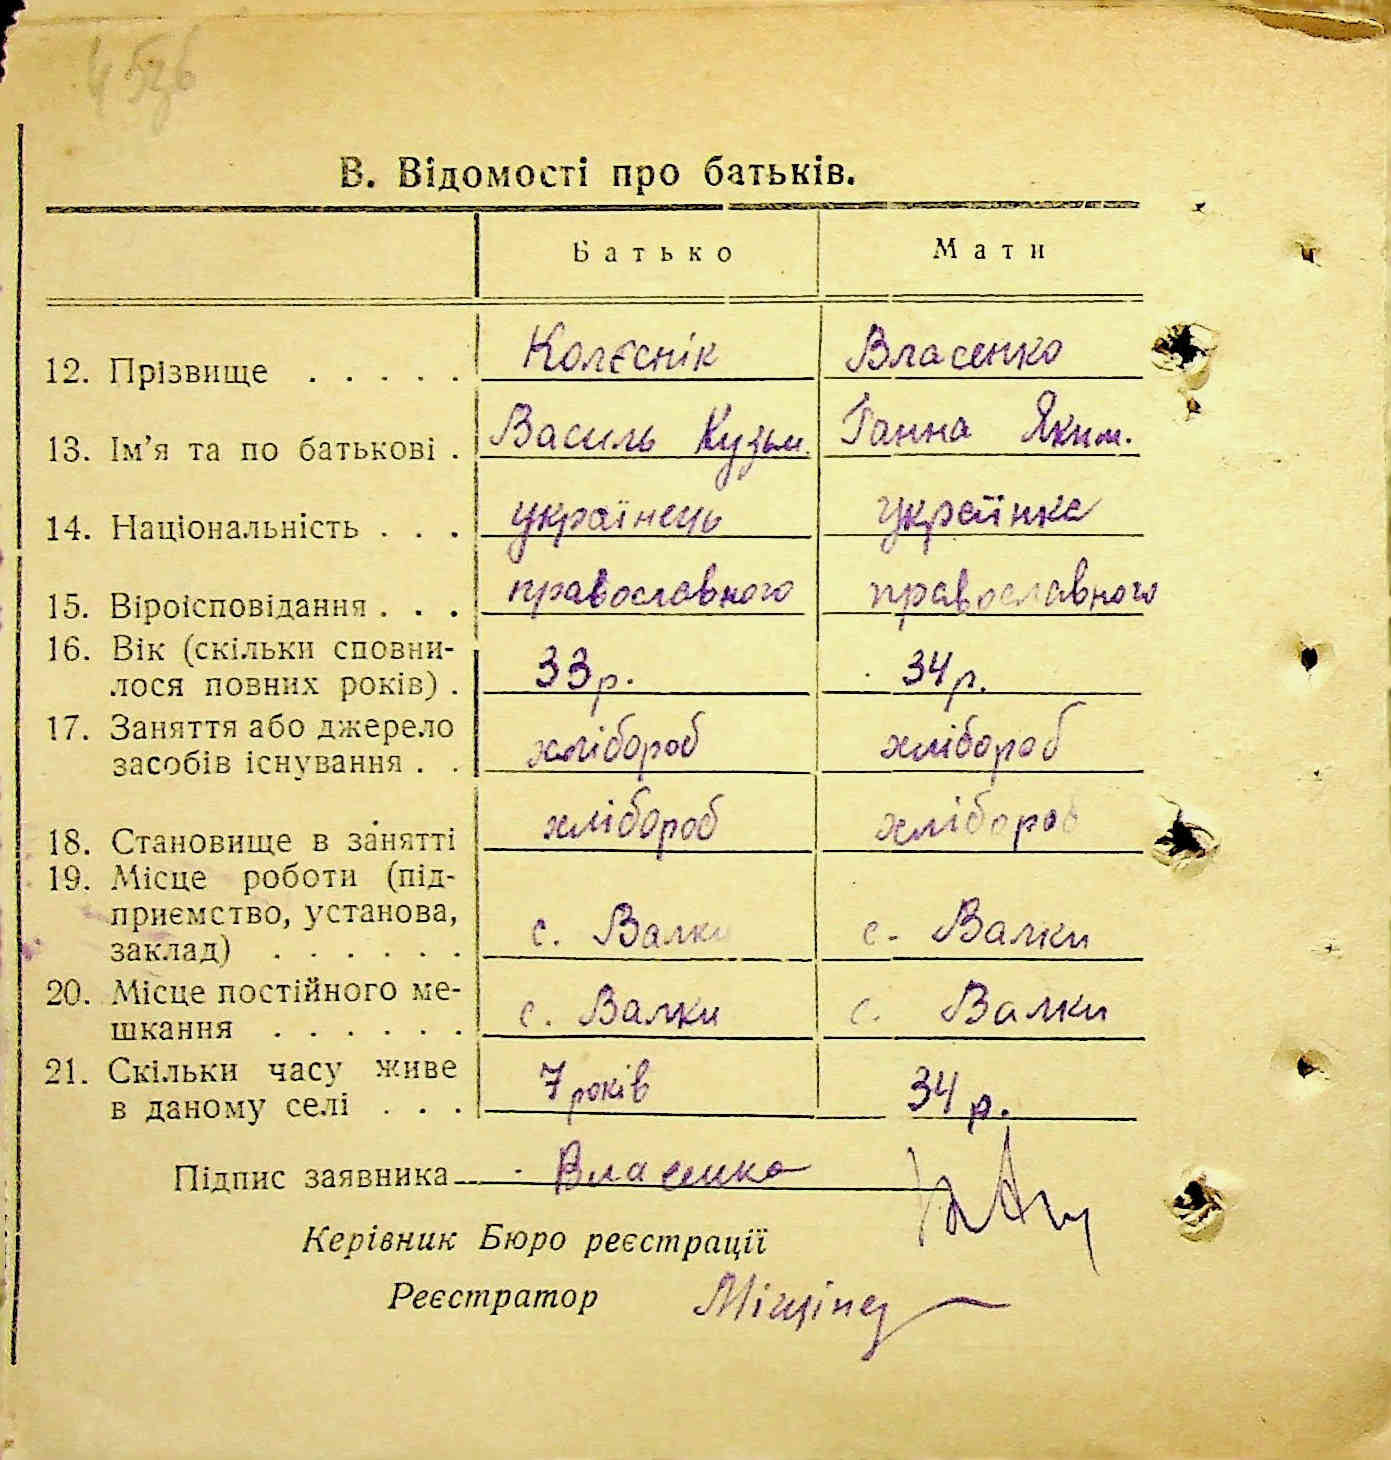 В. Відомості про батьків.
Батько Мати
12. Прізвище . . . . . Колєснік Власенко
13. Ім'я та по батькові . Василь Кузьм. Ганна Яким.
14. Національність . . . українець українка
15. Віроісповідання . . . православного православного
16. Вік (скільки сповни-
лося повних років) . 33 р. 34 р.
17. Заняття або джерело
засобів існування . . хлібороб хлібороб
18. Становище в занятті хлібороб хлібороб
19. Місце роботи (під-
приємство, установа,
заклад) . . . . . . с. Валки с. Валки
20. Місце постійного ме-
шкання . . . . . . с. Валки с. Валки
21. Скільки часу живе
в даному селі . . . 7 років 34 р.
Підпис заявника Власенко
Керівник Бюро реєстрації
Реєстратор